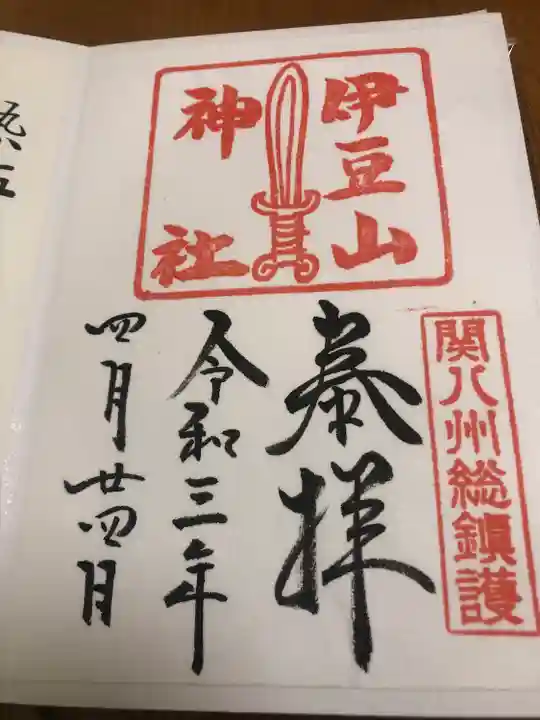 関八州総鎮護
伊豆山
神社
奉拝
令和三年
四月廿四日